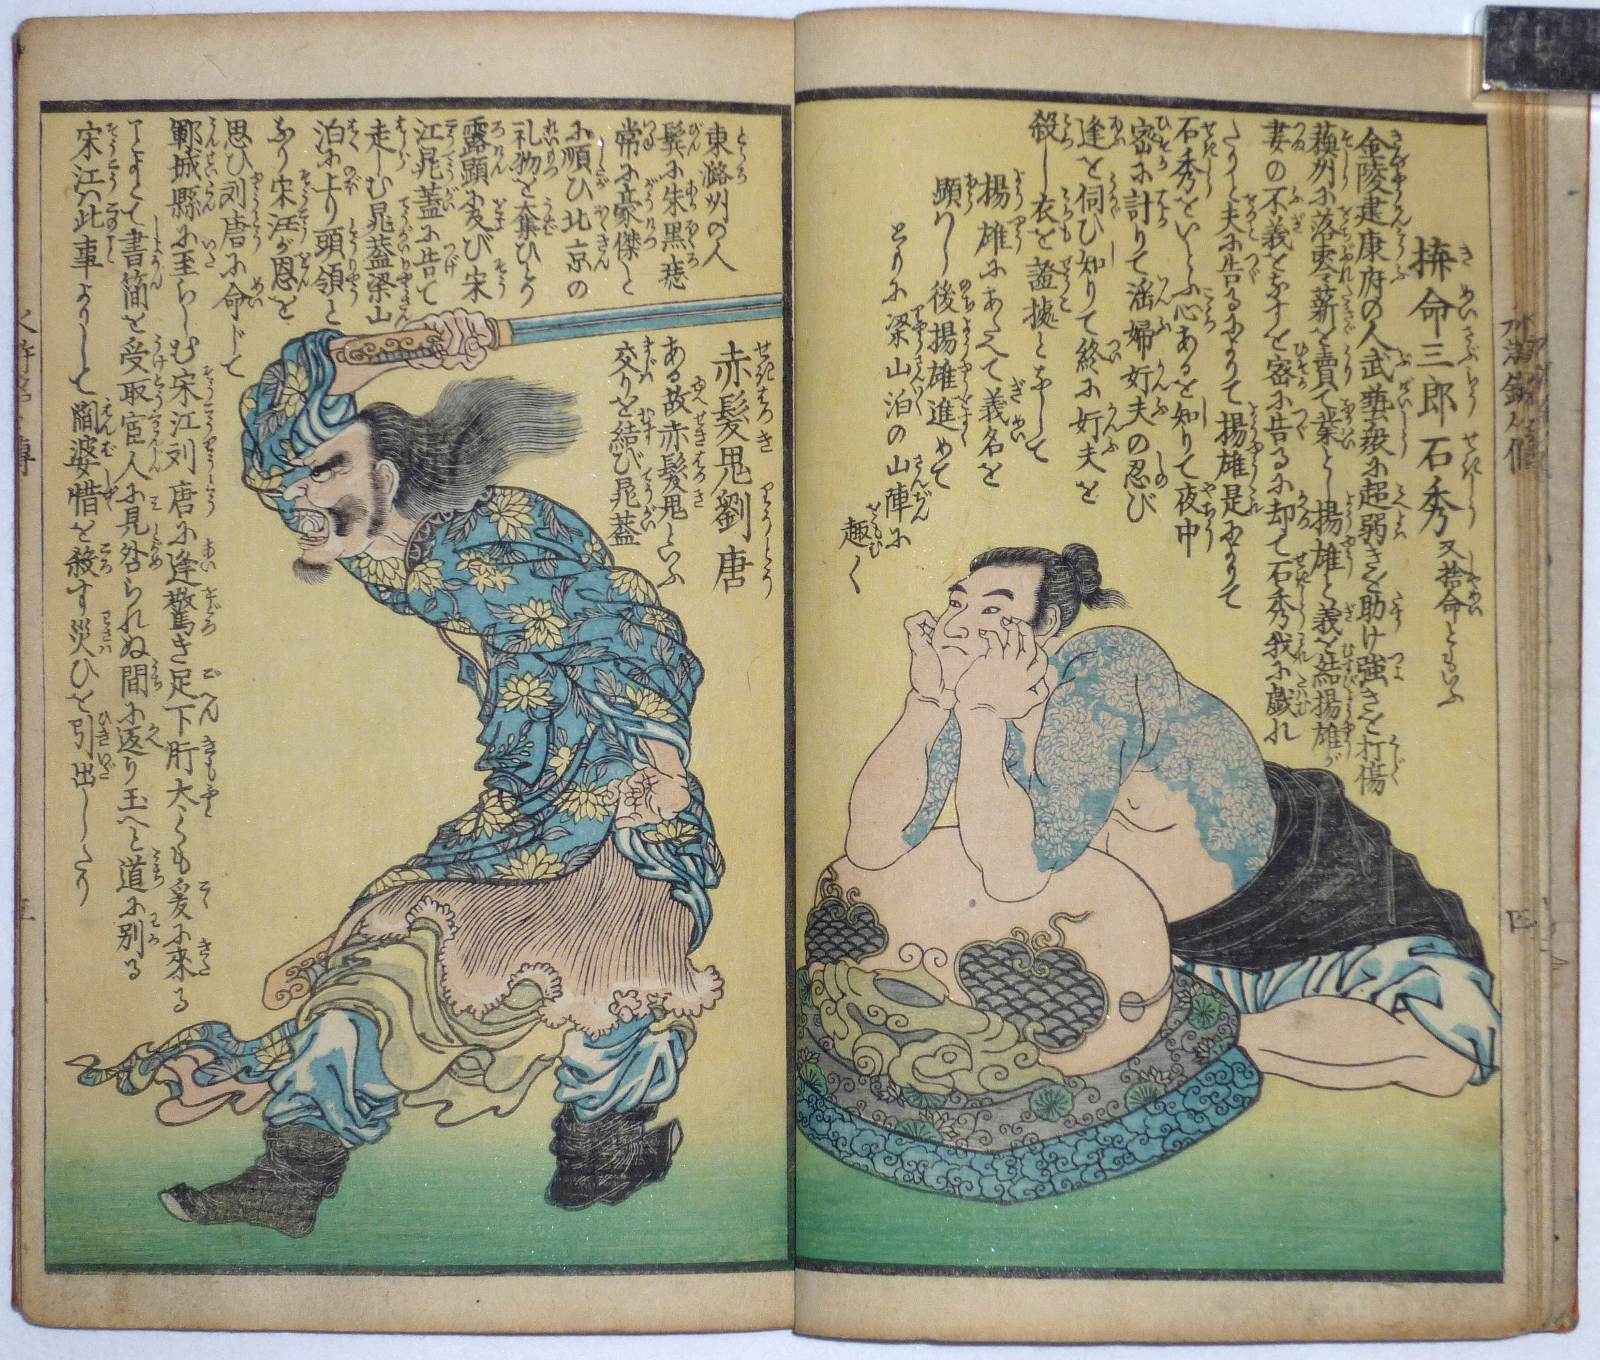 拚命三郎石秀 又捨命ともいふ
金陵建康府の人武藝衆に超弱きを助け強きを打傷
蘓州に落零薪を賣て業とし揚雄と義を結揚雄が
妻の不義をなすを密に告るに却て石秀我に戯れ
たりと夫に告るによりて揚雄是によりて
石秀をいとふ心あるを知りて夜中
密に計りて淫婦奸夫の忍び
逢を伺ひ知りて終に奸夫を
殺し衣を證拠となして
揚雄にあたへて義名を
顕はし後揚雄進めて
ともに梁山泊の山陣に
趣く
赤髪鬼劉唐
東潞州の人
鬂に朱黒痣
ある故赤髪鬼といふ
常に豪傑と
交りを結び晁蓋
に順ひ北京の
礼物を奪ひとり
露顕に及び宋
江晁蓋に告て
走しむ晁蓋梁山
泊に上り頭領と
なり宋江が恩を
思ひ刘唐に命じて
鄆城縣に至らしむ宋江刘唐に逢驚き足下肝太くも爰に来る
とよくて書簡を受取官人に見咎られぬ間に返り玉へと道に別る
宋江は此事よりして閻婆惜を殺す災ひを引出したり